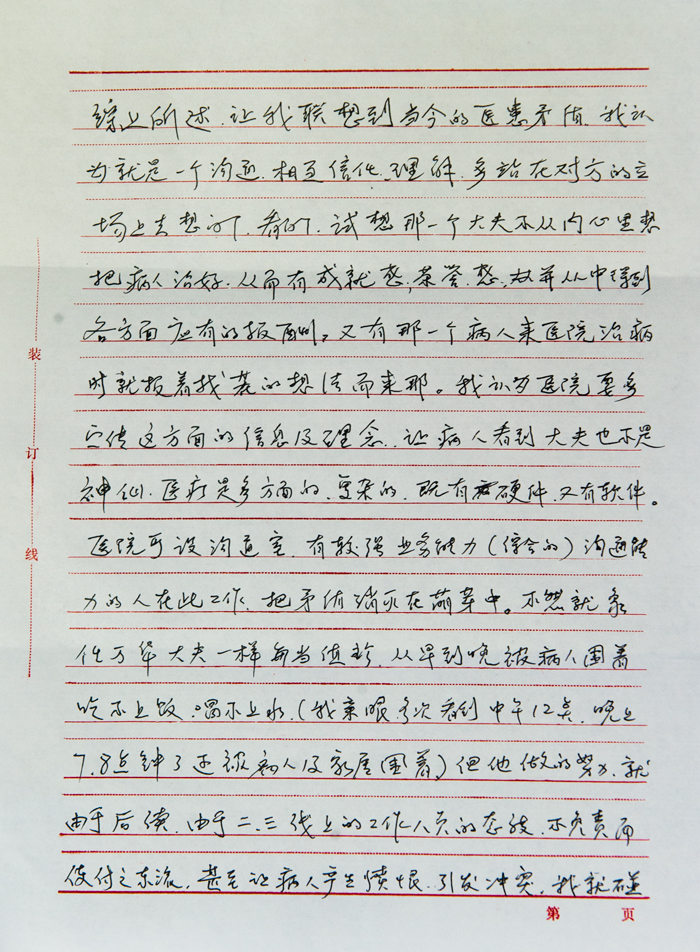 综上所述、让我联想到当今的医患矛盾、我认
为就是一个沟通、相互信任、理解、多站在对方的立
场上去想问、看问、试想那一个大夫不从内心里想
把病人治好、从而有成就感，荣誉感，并从中得到
各方面应有的报酬。又有那一个病人来医院治病
时就报着找茬的想法而来那。我认为医院要多
宣传这方面的信息及理念、让病人看到大夫也不是
神仙、医疗是多方面的、复杂的、既有硬件、又有软件。
医院可设沟通室、有较强业务能力（综合的）沟通能
力的人在此工作、把矛盾消灭在萌芽中。不然就象
任万华大夫一样每当值诊、从早到晚被病人围着
吃不上饭、喝不上水、（我亲眼多次看到中午12点、晚上
7.8点钟了还被病人及家属围着）但他做的努力、就
由于后续、由于二、三线上的工作人员的态度、不负责而
使付之东流，甚至让病人产生愤恨、引发冲突，我就不
装
订
线
第 页